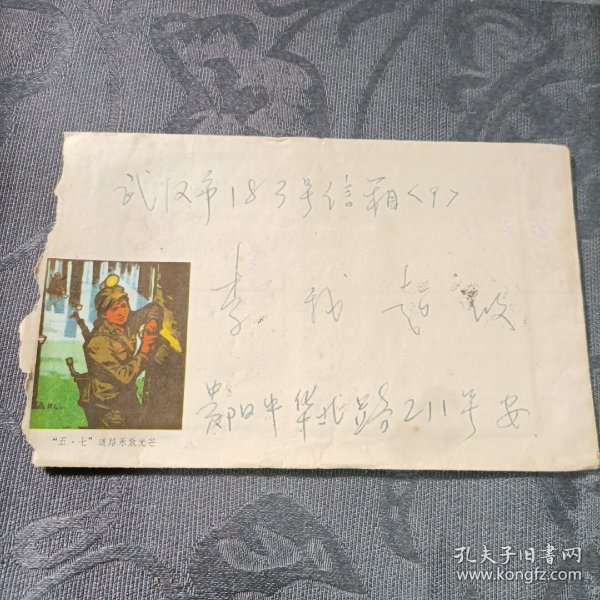 武汉市183号信箱〈9〉
李 超 收
贵阳中华北路211号 安
"五·七"道路永放光芒
孔夫子旧书网
www.kongfz.com